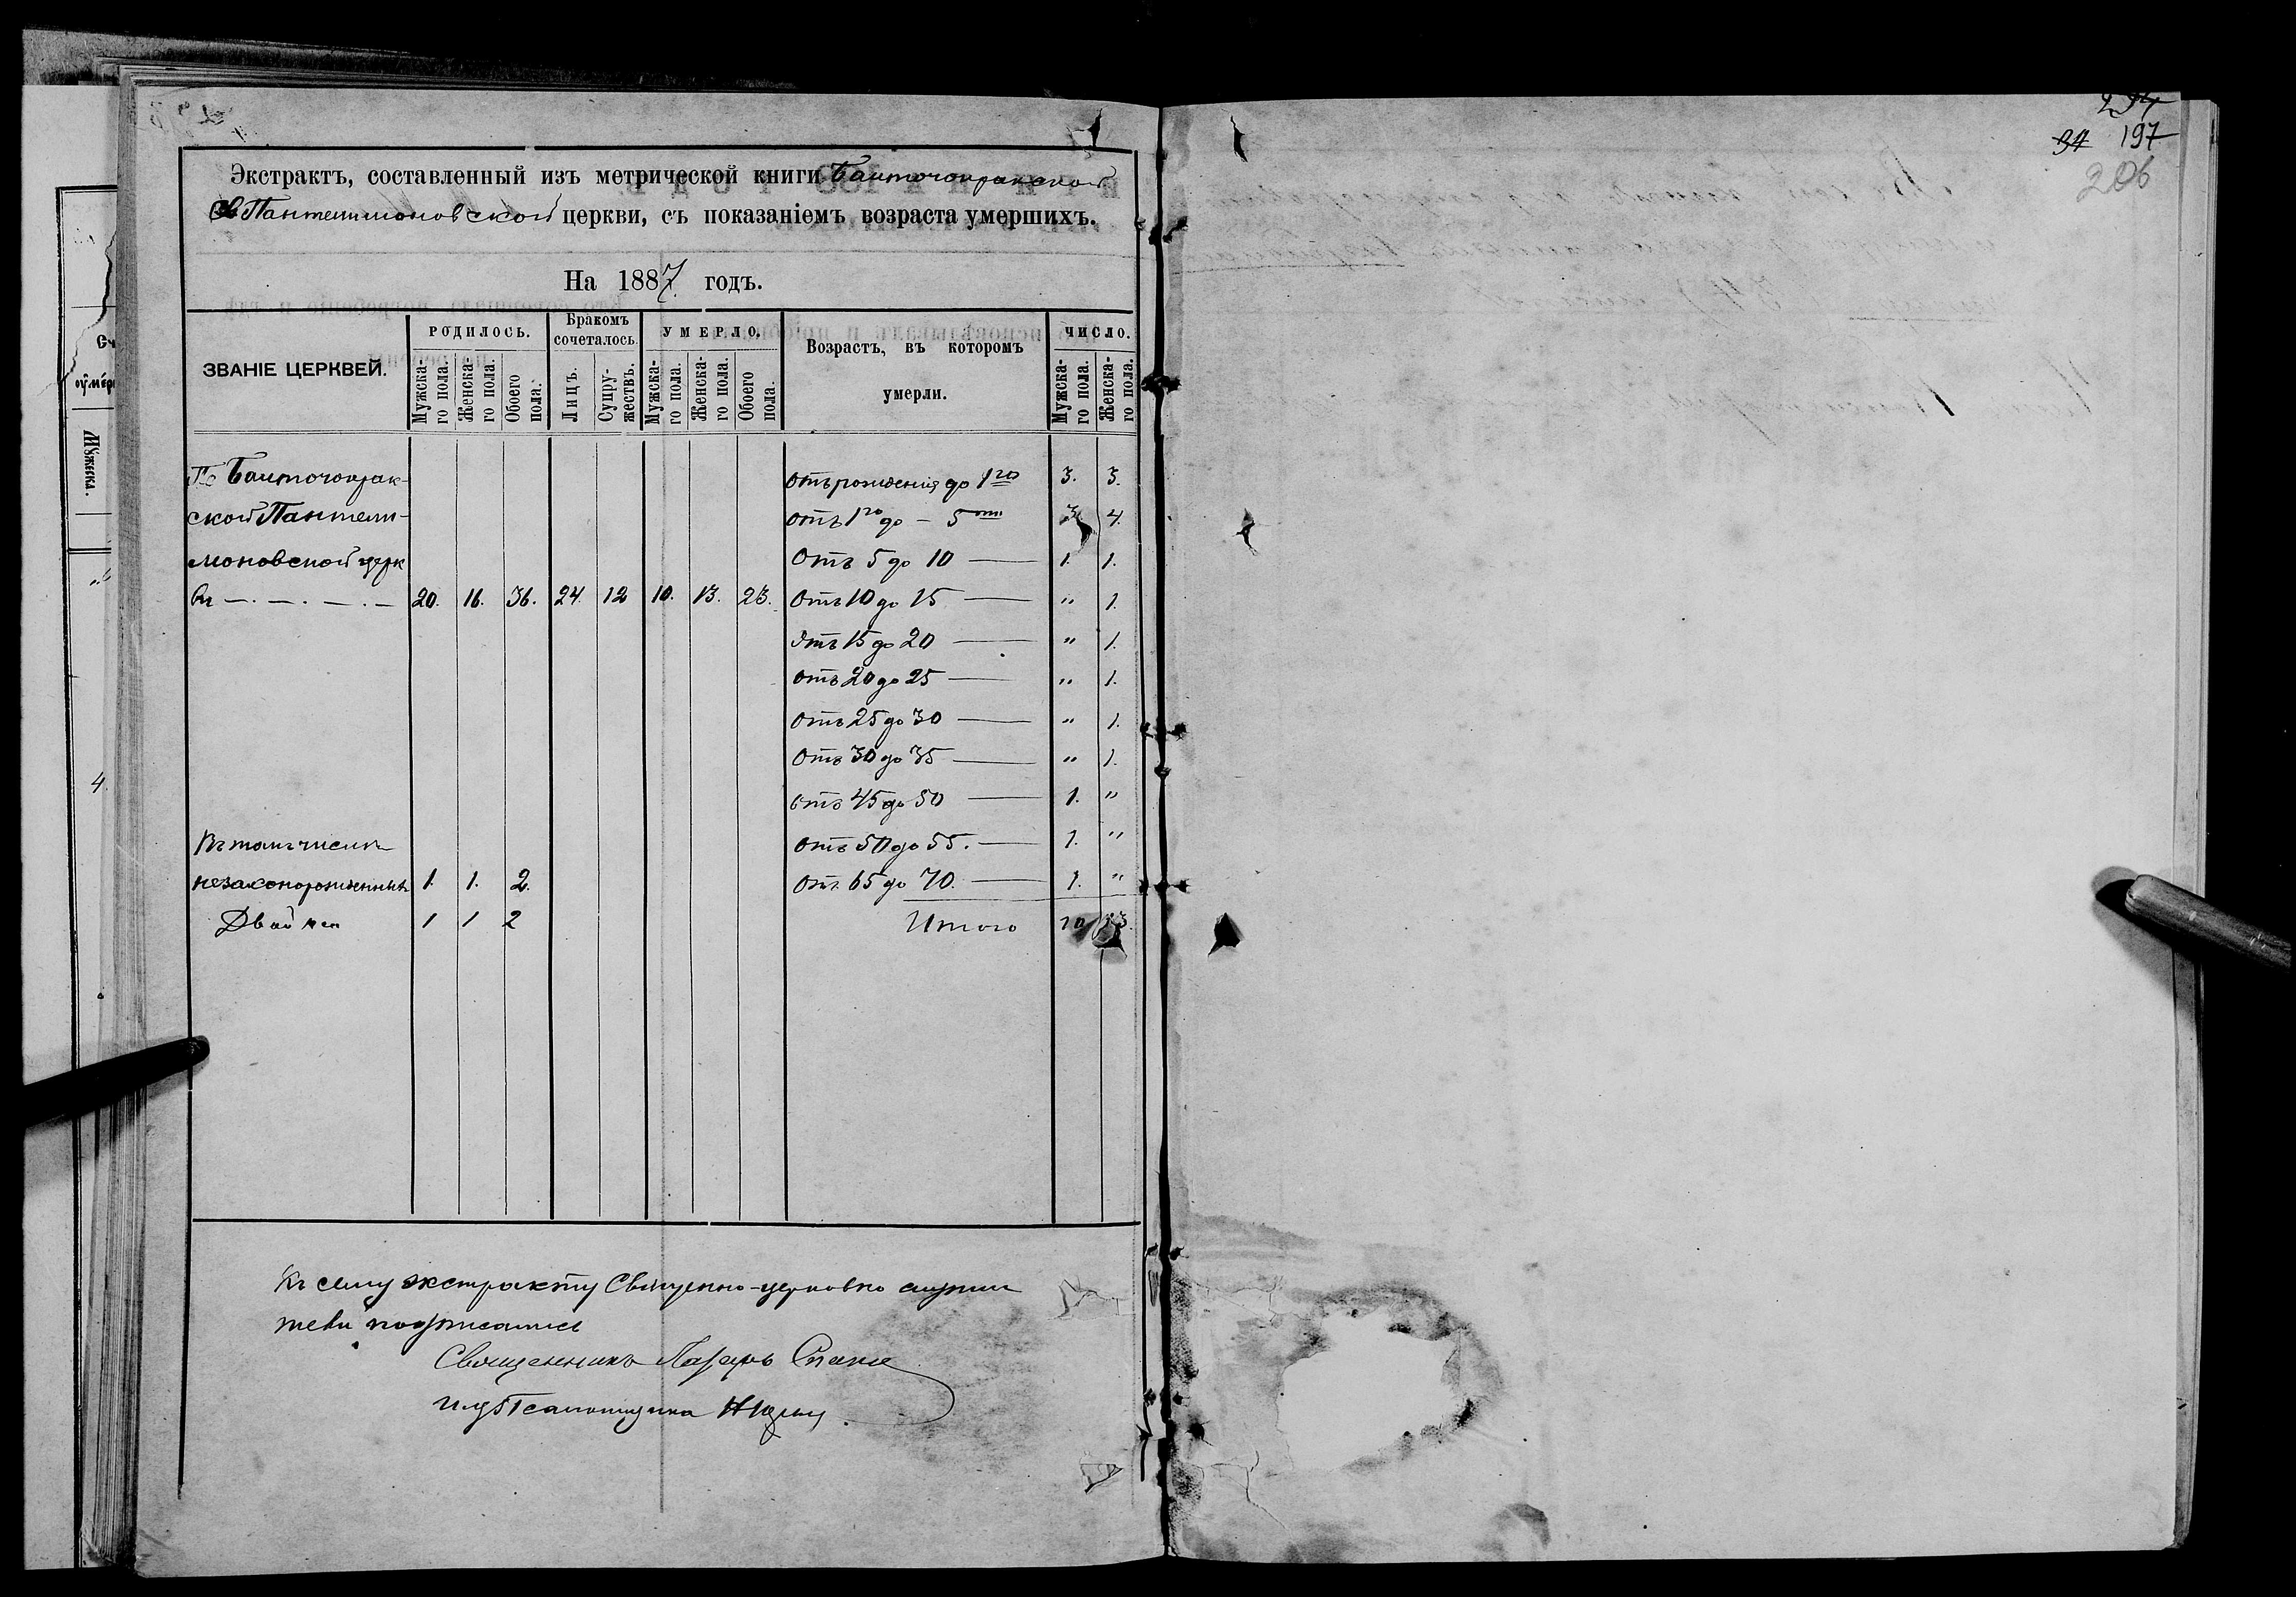 Экстрактъ, составленный изъ метрической книги Баиточокракской
Св Пантелимоновской церкви, съ показаніемъ возраста умершихъ.
На 1887 годъ.
ЗВАНІЕ ЦЕРКВЕЙ. РОДИЛОСЬ. Бракомъ сочеталось. УМЕРЛО. Возрастъ, въ которомъ умерли. ЧИСЛО.
Мужска-го пола. Женска-го пола. Обоего пола. Лицъ. Супру-жествъ. Мужска-го пола. Женска-го пола. Обоего пола. Мужска-го пола. Женска-го пола.
По Баиточокрак- отъ рожденія до 1го 3. 3.
ской Пантели- отъ 1го до — 5ти 3 4.
моновской церк Отъ 5 до 10 — 1. 1.
ви — . — . — . — 20. 16. 36. 24. 12 10. 13. 23. Отъ 10 до 15 — " 1.
Отъ 15 до 20 — " 1.
Отъ 20 до 25 — " 1.
Отъ 25 до 30 — " 1.
Отъ 30 до 35 — " 1.
отъ 45 до 50 — 1. "
Въ томъ числѣ отъ 50 до 55. — 1. "
незаконорожденныхъ 1. 1. 2. Отъ 65 до 70. — 1. "
Двойни 1 1 2 Итого 10 13
Къ сему экстракту Священно-церковно служи
тели подписались
Священникъ Лазарь
и д Псаломщика
234
34 197
206
4.
Мужска.